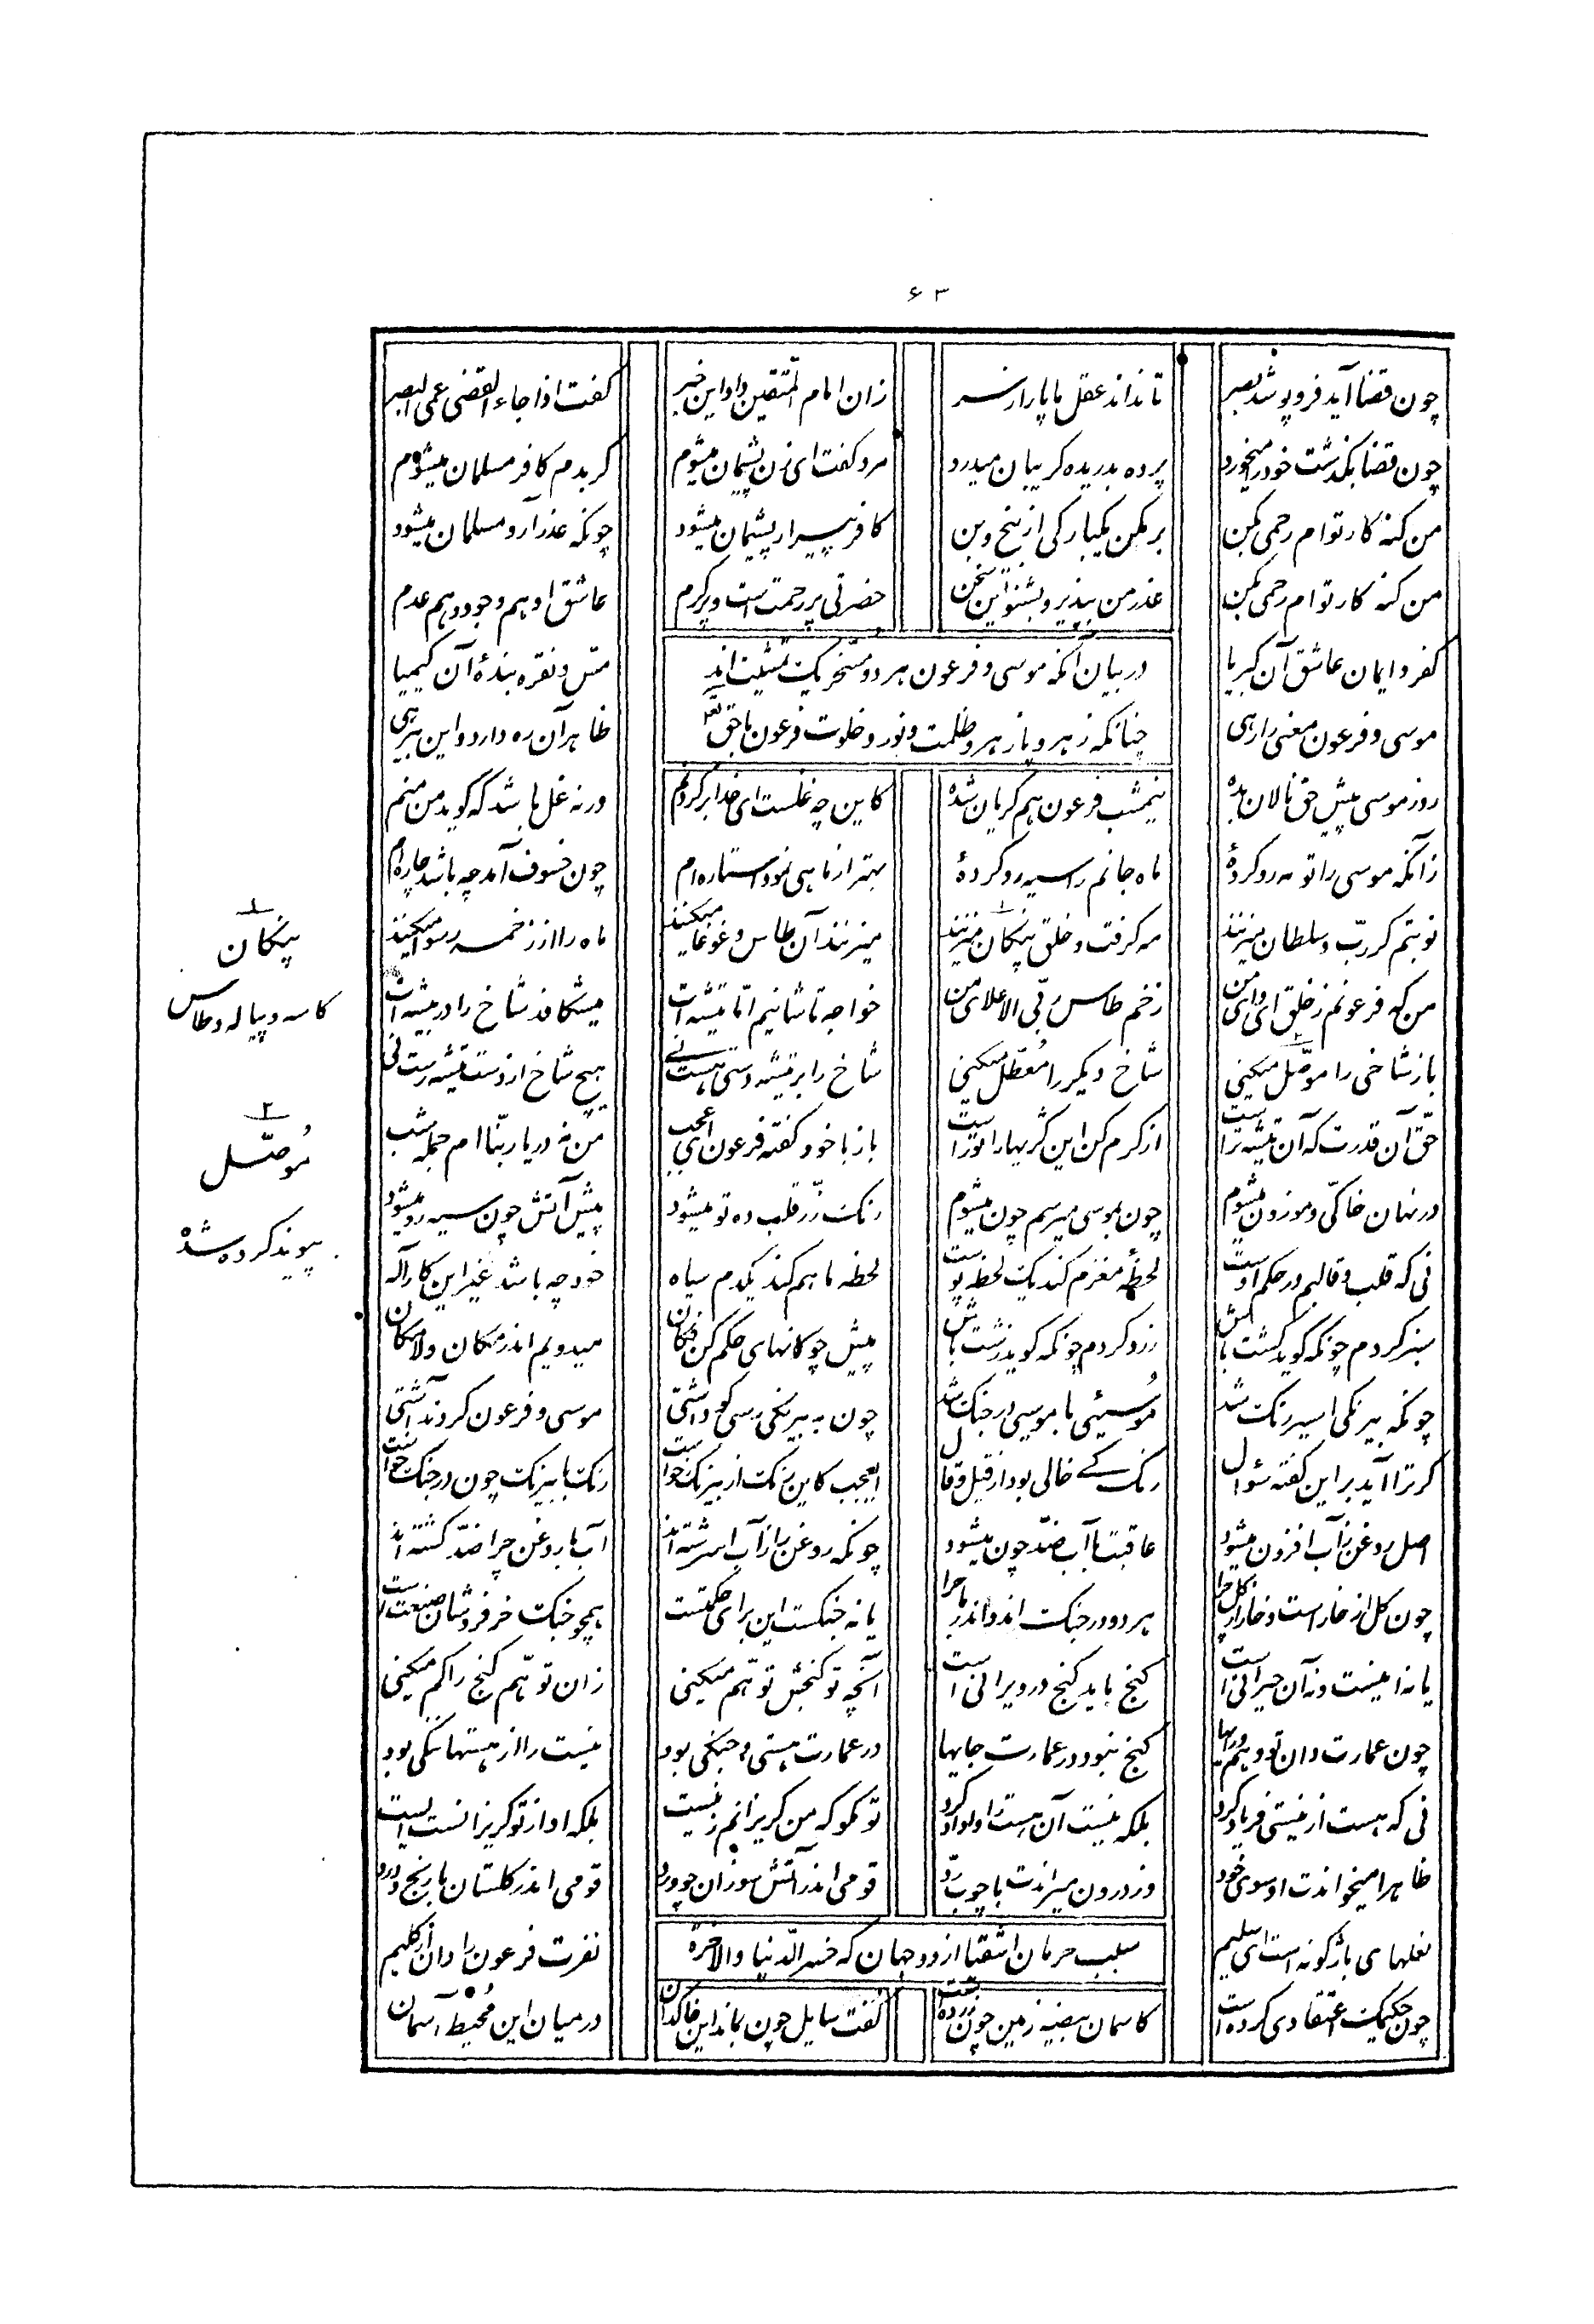 ۶۳
چون قضا آید فرو پوشد بصر
تا نداند عقل ما پا را ز سر
زان امام المتقین داد این خبر
گفت اذا جاء القضی عمی البصر
چون قضا بگذشت خود را میخورد
پرده بدریده گریبان میدرد
مرد گفت ای زن پشیمان میشوم
گر بدم کافر مسلمان میشوم
من گنه کار توام رحمی بکن
بر مکن یکبارگی از بیخ و بن
کافر پیر ار پشیمان میشود
چونکه عذر آرد مسلمان میشود
من گنه کار توام رحمی بکن
عذر من بپذیر و بشنو این سخن
حضرتی پر رحمت است و پر کرم
عاشق او هم وجود و هم عدم
کفر و ایمان عاشق آن کبریا
مس و نقره بندهٔ آن کیمیا
در بیان آنکه موسی و فرعون هر دو مسخر یک مشیت‌اند
چنانکه زهر و پازهر و ظلمت و نور و خلوت فرعون با حق تعم
موسی و فرعون معنی را رهی
ظاهر آن ره دارد و این بیرهی
روز موسی پیش حق نالان بده
نیمشب فرعون هم گریان شده
کاین چه غلست ای خدا بر گردنم
ورنه غل باشد که گوید من منم
زآنکه موسی را تو مه رو کردهٔ
ماه جانم را سیه رو کردهٔ
بهتر از ماهی نبود استاره‌ام
چون خسوف آمد چه باشد چاره‌ام
نوبتم گر رب و سلطان میزنند
مه گرفت و خلق پنگان میزنند
میزنند آن طاس و غوغا میکنند
ماه را از زخمه رسوا میکنند
من که فرعونم ز خلق ای وای من
زخم طاس ربی الاعلای من
خواجه تاشانیم اما تیشه‌ات
میشکافد شاخ را در بیشه‌ات
باز شاخی را موصل میکنی
شاخ دیگر را معطل میکنی
شاخ را بر تیشه دستی هست نی
هیچ شاخ از دست تیشه رست نی
حق آن قدرت که آن تیشه تراست
از کرم کن این کژیها را تو راست
باز با خود گفته فرعون ای عجب
من نه در یا ربنا ام جمله شب
در نهان خاکی و موزون میشوم
چون بموسی میرسم چون میشوم
رنگ زر قلب ده تو میشود
پیش آتش چون سیه رو میشود
نی که قلب و قالبم در حکم اوست
لحظهٔ مغزم کند یک لحظه پوست
لحظه ماهم کند یکدم سیاه
خود چه باشد غیر این کار آله
سبز کردم چونکه گوید کشت باش
زرد کردم چونکه گوید زشت باش
پیش چوکانهای حکم کن فکان
میدویم اندر مکان و لامکان
چونکه بیرنگی اسیر رنگ شد
موسئی با موسی در جنگ شد
چون به بیرنگی رسی کو داشتی
موسی و فرعون کردند آشتی
گر ترا آید بر این گفته سئوال
رنگ کی خالی بود از قیل و قال
ای عجب کاین رنگ از بیرنگ خواست
رنگ با بیرنگ چون در جنگ خواست
اصل روغن ز آب افزون میشود
عاقبت با آب ضد چون میشود
چونکه روغن را ز آب اسرشته‌اند
آب با روغن چرا ضد گشته‌اند
چون گل از خار است و خار از گل چرا
هر دو در جنگ اند و اندر ماجرا
یا نه جنگست این برای حکمتست
همچو جنگ خر فروشان صنعت است
یا نه اینست و نه آن حیرانی است
گنج باید گنج در ویرانی است
آنچه تو گنجش توهم میکنی
زان توهم گنج را گم میکنی
چون عمارت دان تو وهم و رایها
گنج نبود در عمارت جایها
در عمارت هستی و جنگی بود
نیست را از هستها ننگی بود
نی که هست از نیستی فریاد کرد
بلکه نیست آن هست را واداد کرد
تو مگو که من گریزانم ز نیست
بلکه او از تو گریزانست ایست
ظاهرا میخواندت او سوی خود
وز درون میراندت با چوب رد
قومی اندر آتش سوزان چو ورد
قومی اندر گلستان با رنج و درد
نعلهای باژگونه است ای سلیم
نفرت فرعون را دان از کلیم
سبب حرمان اشقیا از دو جهان که خسر الدنیا والآخرة
چون حکیمک اعتقادی کرده است
کاسمان بیضه زمین چون زرده است
گفت سایل چون بماند این خاکدان
در میان این محیط آسمان
۱
پنگان
کاسه و پیاله و طاس
۲
مُوصَّل
پیوند کرده شده